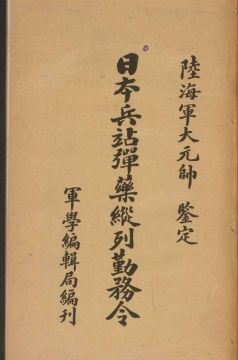 陸海軍大元帥 鑒定
日本兵站彈藥縱列勤務令
軍學編輯局編刊